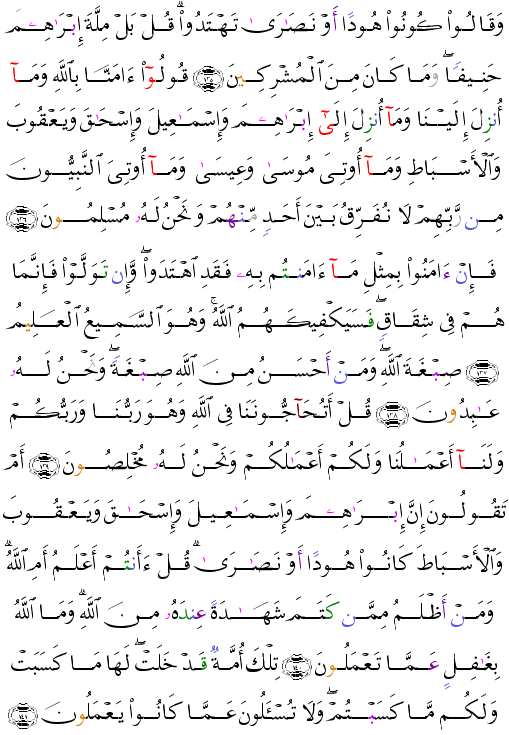 وَقَالُوا۟ كُونُوا۟ هُودًا أَوْ نَصَٰرَىٰ تَهْتَدُوا۟ ۗ قُلْ بَلْ مِلَّةَ إِبْرَٰهِـۧمَ
حَنِيفًا ۖ وَمَا كَانَ مِنَ ٱلْمُشْرِكِينَ ﴿١٣٥﴾ قُولُوٓا۟ ءَامَنَّا بِٱللَّهِ وَمَآ
أُنزِلَ إِلَيْنَا وَمَآ أُنزِلَ إِلَىٰٓ إِبْرَٰهِـۧمَ وَإِسْمَٰعِيلَ وَإِسْحَٰقَ وَيَعْقُوبَ
وَٱلْأَسْبَاطِ وَمَآ أُوتِىَ مُوسَىٰ وَعِيسَىٰ وَمَآ أُوتِىَ ٱلنَّبِيُّونَ
مِن رَّبِّهِمْ لَا نُفَرِّقُ بَيْنَ أَحَدٍ مِّنْهُمْ وَنَحْنُ لَهُۥ مُسْلِمُونَ ﴿١٣٦﴾
فَإِنْ ءَامَنُوا۟ بِمِثْلِ مَآ ءَامَنتُم بِهِۦ فَقَدِ ٱهْتَدَوا۟ ۖ وَّإِن تَوَلَّوْا۟ فَإِنَّمَا
هُمْ فِى شِقَاقٍ ۖ فَسَيَكْفِيكَهُمُ ٱللَّهُ ۚ وَهُوَ ٱلسَّمِيعُ ٱلْعَلِيمُ
﴿١٣٧﴾ صِبْغَةَ ٱللَّهِ ۖ وَمَنْ أَحْسَنُ مِنَ ٱللَّهِ صِبْغَةً ۖ وَنَحْنُ لَهُۥ
عَٰبِدُونَ ﴿١٣٨﴾ قُلْ أَتُحَآجُّونَنَا فِى ٱللَّهِ وَهُوَ رَبُّنَا وَرَبُّكُمْ
وَلَنَآ أَعْمَٰلُنَا وَلَكُمْ أَعْمَٰلُكُمْ وَنَحْنُ لَهُۥ مُخْلِصُونَ ﴿١٣٩﴾ أَمْ
تَقُولُونَ إِنَّ إِبْرَٰهِـۧمَ وَإِسْمَٰعِيلَ وَإِسْحَٰقَ وَيَعْقُوبَ
وَٱلْأَسْبَاطَ كَانُوا۟ هُودًا أَوْ نَصَٰرَىٰ ۗ قُلْ ءَأَنتُمْ أَعْلَمُ أَمِ ٱللَّهُ ۗ
وَمَنْ أَظْلَمُ مِمَّن كَتَمَ شَهَٰدَةً عِندَهُۥ مِنَ ٱللَّهِ ۗ وَمَا ٱللَّهُ
بِغَٰفِلٍ عَمَّا تَعْمَلُونَ ﴿١٤٠﴾ تِلْكَ أُمَّةٌ قَدْ خَلَتْ ۖ لَهَا مَا كَسَبَتْ
وَلَكُم مَّا كَسَبْتُمْ ۖ وَلَا تُسْـَٔلُونَ عَمَّا كَانُوا۟ يَعْمَلُونَ ﴿١٤١﴾